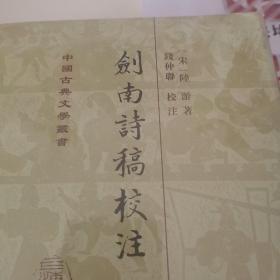 [宋]陸游著
錢仲聯校注
劍南詩稿校注
中國古典文學叢書
三